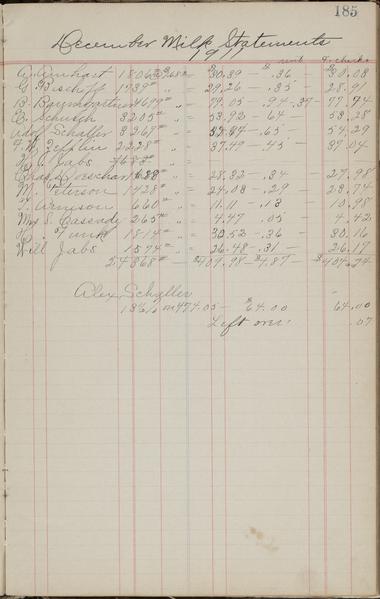 185
December Milk Statements
1911
A. Amhart 1806# " = $30.39 - $.36 - $30.08
G. Bischoff 1739# " = 29.26 . .35 - 28.91
B. Baumgartner 4699# " = 79.05 - .94 .37 - 77.74
C. Schurich 3205# " = 53.92 - 64 - 53.28
Adolf Schaller 3267# " = .65 - 54.29
F. W. Zepplin 2228# " = 37.49 - .45 - 37.04
Jabs
Chas. 1683# " = 28.32 - .34 - 27.98
M. Peterson 1428# " = 24.03 - .29 - 23.74
T. Arneson 660# " = 11.11 - .13 - 10.98
Mrs S. Cassady 265# " = 4.47 .05 - 4.42
H. Funk 1814# " = 30.52 - .36 - 30.16
Will Jabs 1574# " = 26.48 - .31 - 26.17
24368# - $409.98 - $4.87 - $404.74
Alex Schaller
474.05 - $64.00 64.00
Left over .07